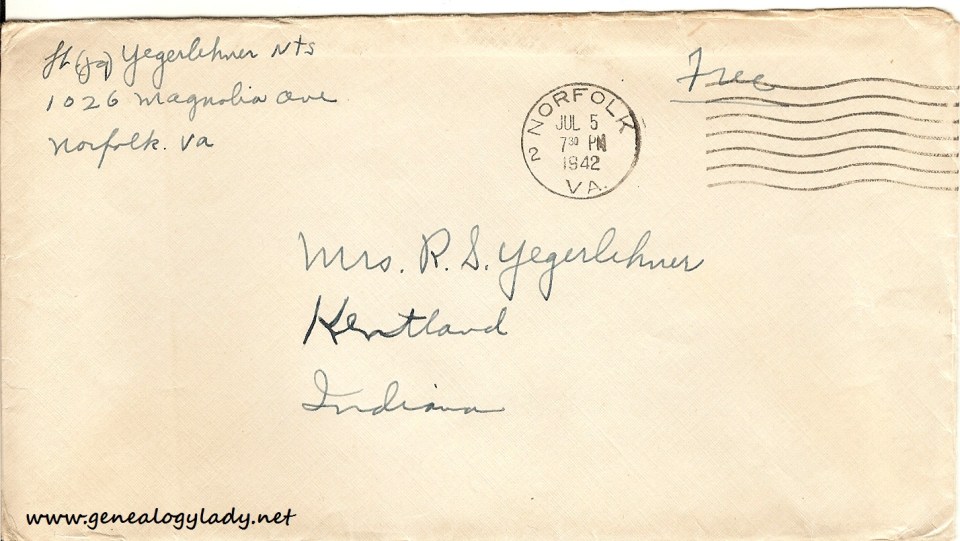 Lt (jg) Yegerlehner Nts
1026 Magnolia Ave
Norfolk. Va
Free
NORFOLK
JUL 5
7 30 PM
2
1942
VA.
Mrs. R. S. Yegerlehner
Kentland
Indiana
www.genealogylady.net